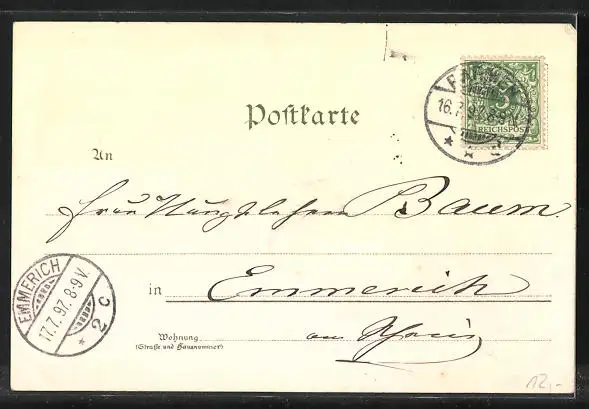 Postkarte
BARMEN
16.7.97.8-9V.
5
REICHSPOST
An
Frau Hauptlehrer Baum.
EMMERICH
17.7.97.8-9V.
2 c
in Emmerich
Wohnung
am Rhein
(Straße und Hausnummer)
12,-